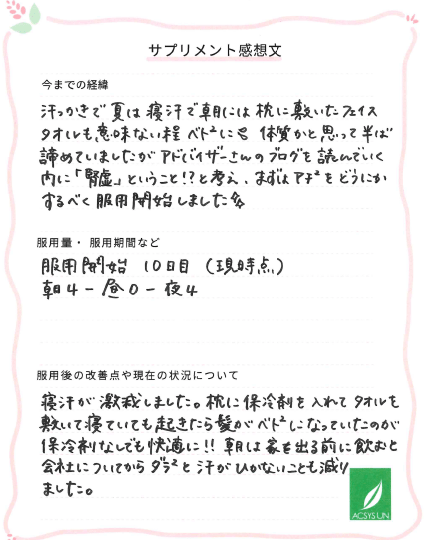 サプリメント感想文
今までの経緯
汗っかきで夏は寝汗で朝には枕に敷いたフェイス
タオルも意味ない程ベト²に💦 体質かと思って半ば
諦めていましたがアドバイザーさんのブログを読んでいく
内に「腎虚」ということ!?と考え、まずはアチ²をどうにか
するべく服用開始しました✨
服用量・服用期間など
服用開始 10日目 (現時点)
朝4-昼0-夜4
服用後の改善点や現在の状況について
寝汗が激減しました。枕に保冷剤を入れてタオルを
敷いて寝ていても起きたら髪がベト²になっていたのが
保冷剤なしでも快適に!! 朝は家を出る前に飲むと
会社についてからダラ²と汗がひかないことも減り
ました。
ACSYS UN